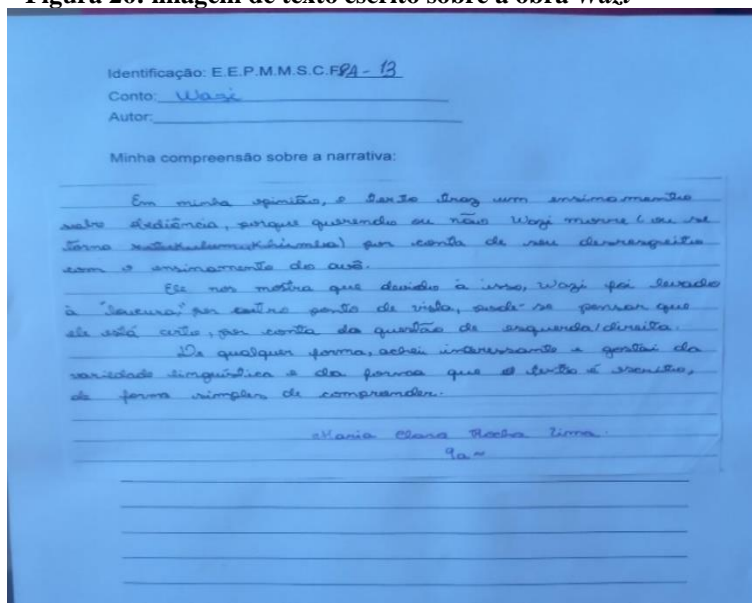 Figura 26: Imagem de texto escrito sobre a obra Wazi
Identificação: E.E.P.M.M.S.C.F PA - 13
Conto: Wazi
Autor:
Minha compreensão sobre a narrativa:
Em minha opinião, o texto traz um ensinamento
sobre obediência, porque querendo ou não Wazi morre (ou se
torna por conta de seu desrespeito
com o ensinamento do avô.
Ele nos mostra que devido à isso, Wazi foi levado
à "loucura", por outro ponto de vista, pode-se pensar que
ele está certo, por conta da questão de esquerda/direita.
De qualquer forma, achei interessante e gostei da
variedade linguística e da forma que o texto é escrito,
de forma simples de compreender.
Maria Clara Rocha Lima
9a~